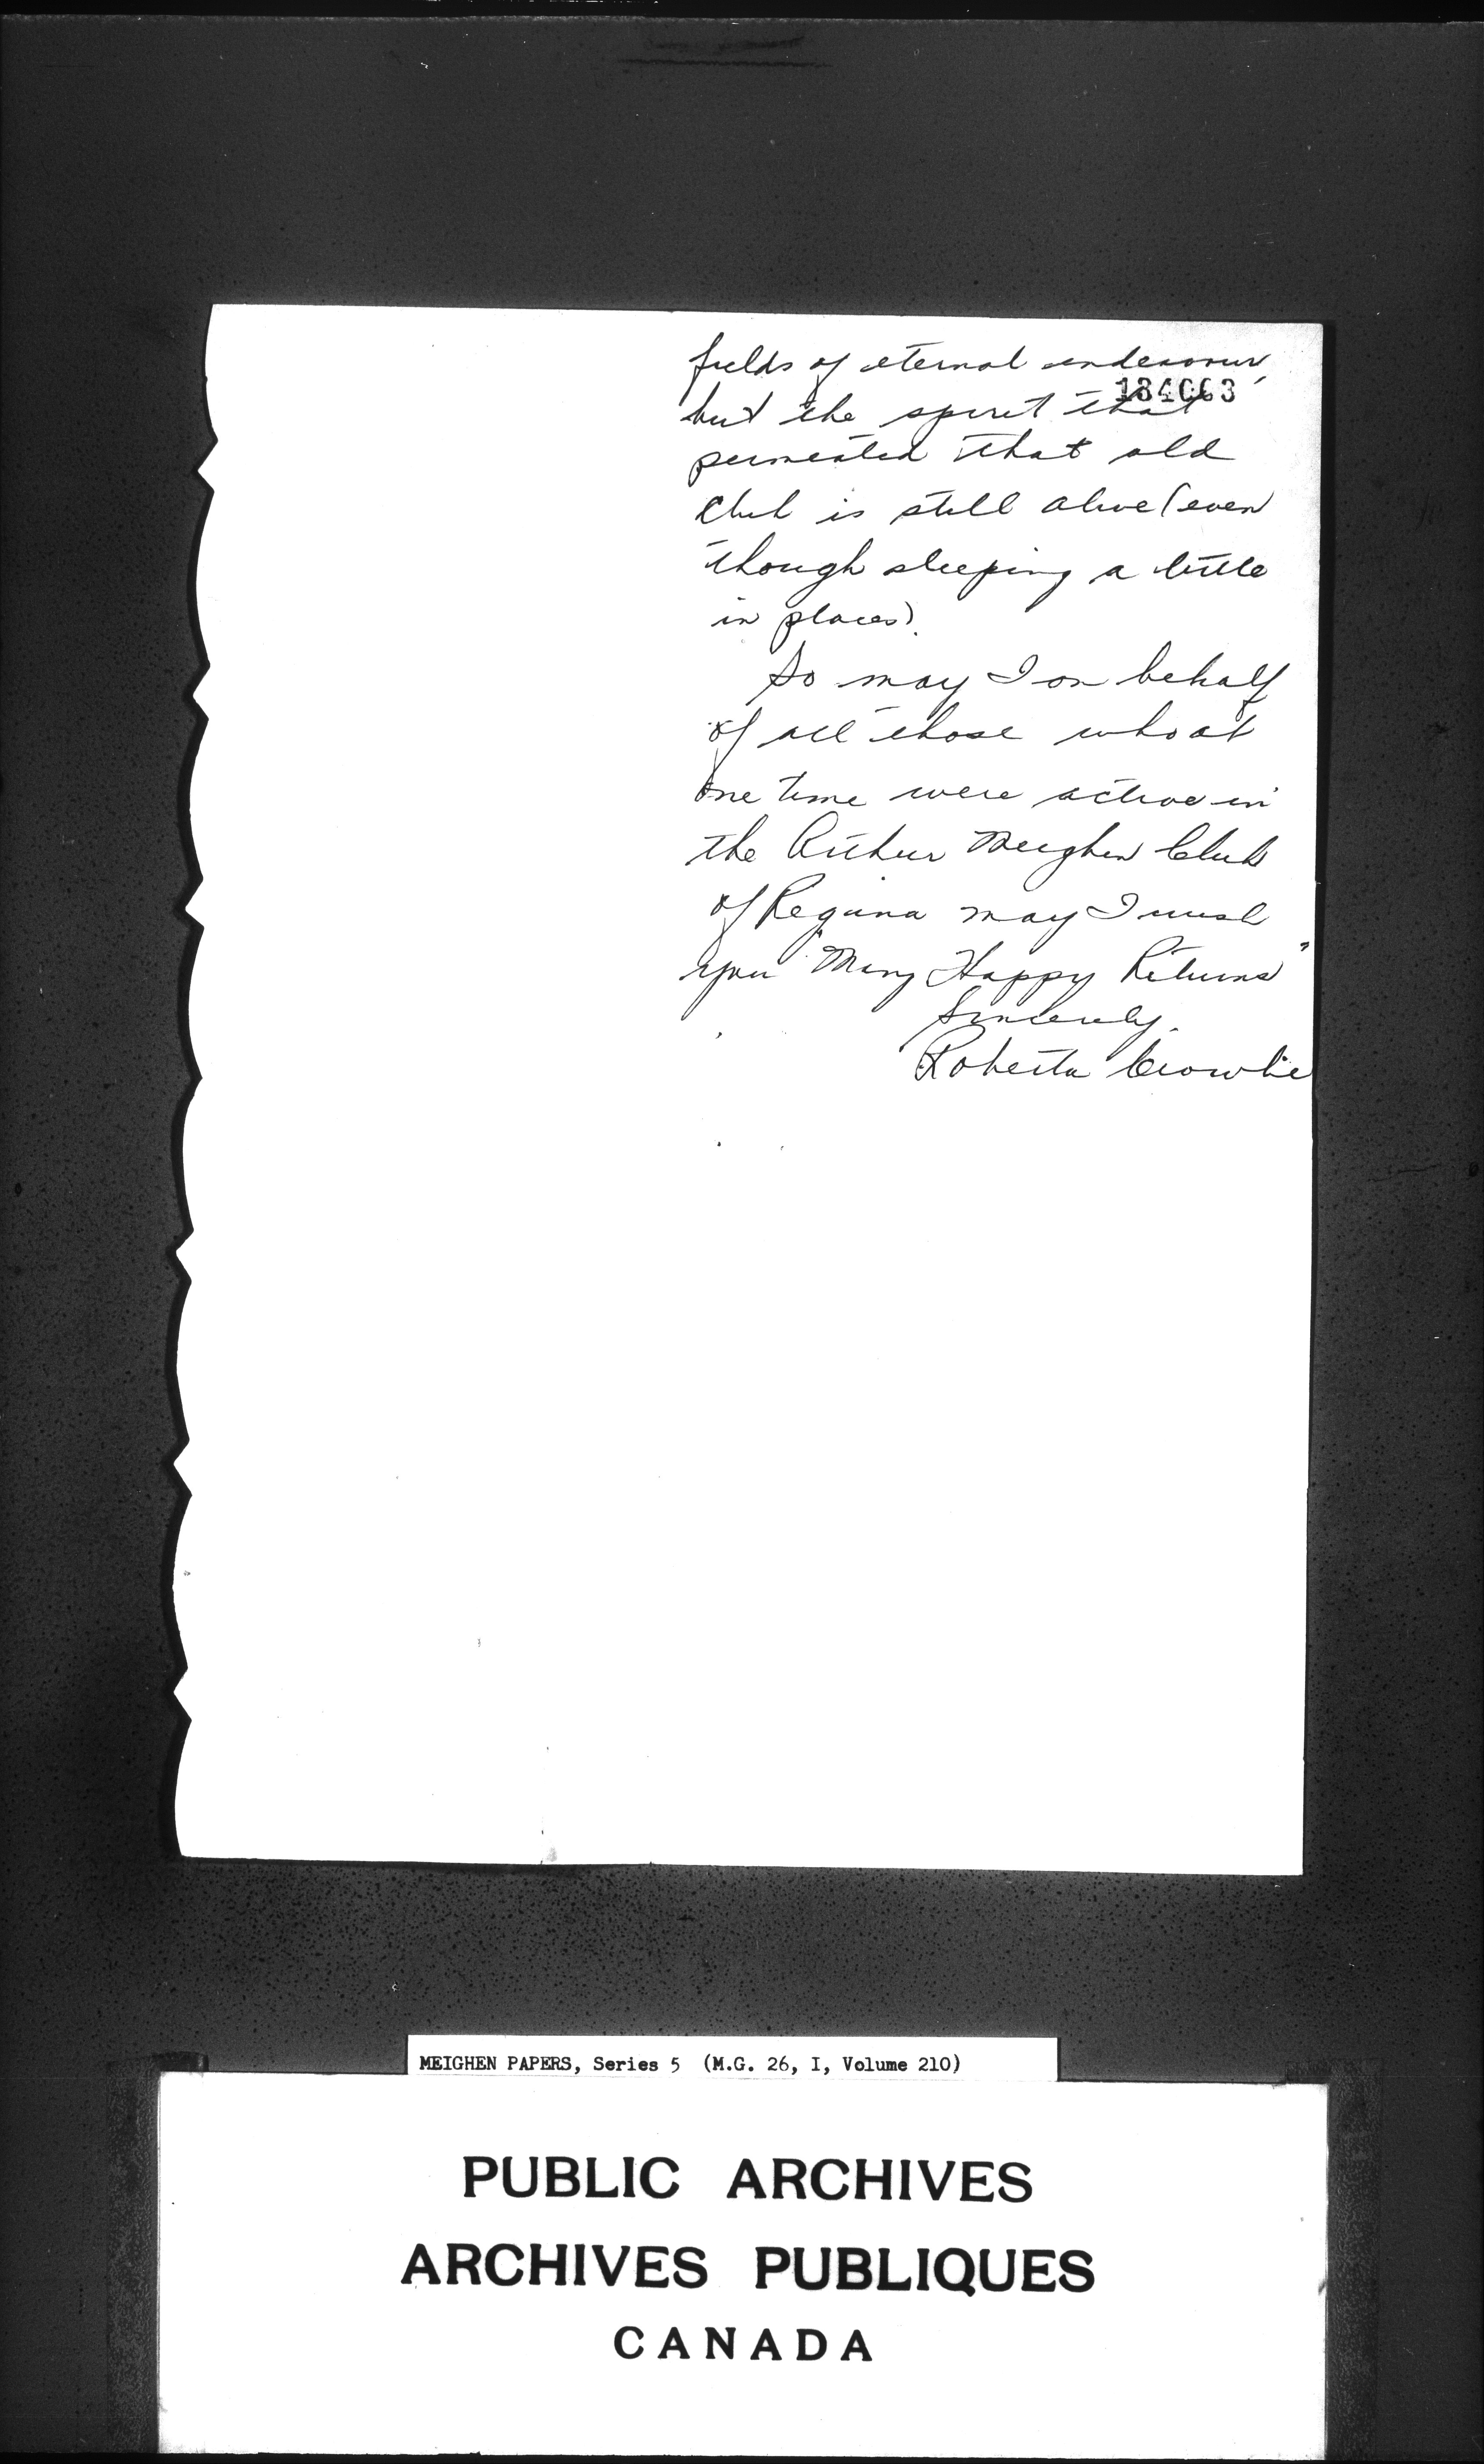 fields of eternal endeavour,
184063
but the spirit that
permeated that old
Club is still alive (even
though sleeping a little
in places).
So may I on behalf
of all those who at
one time were active in
the Arthur Meighen Club
of Regina may I wish
you "Many Happy Returns"
Sincerely.
Roberta Crowlie
MEIGHEN PAPERS, Series 5 (M.G. 26, I, Volume 210)
PUBLIC ARCHIVES
ARCHIVES PUBLIQUES
CANADA